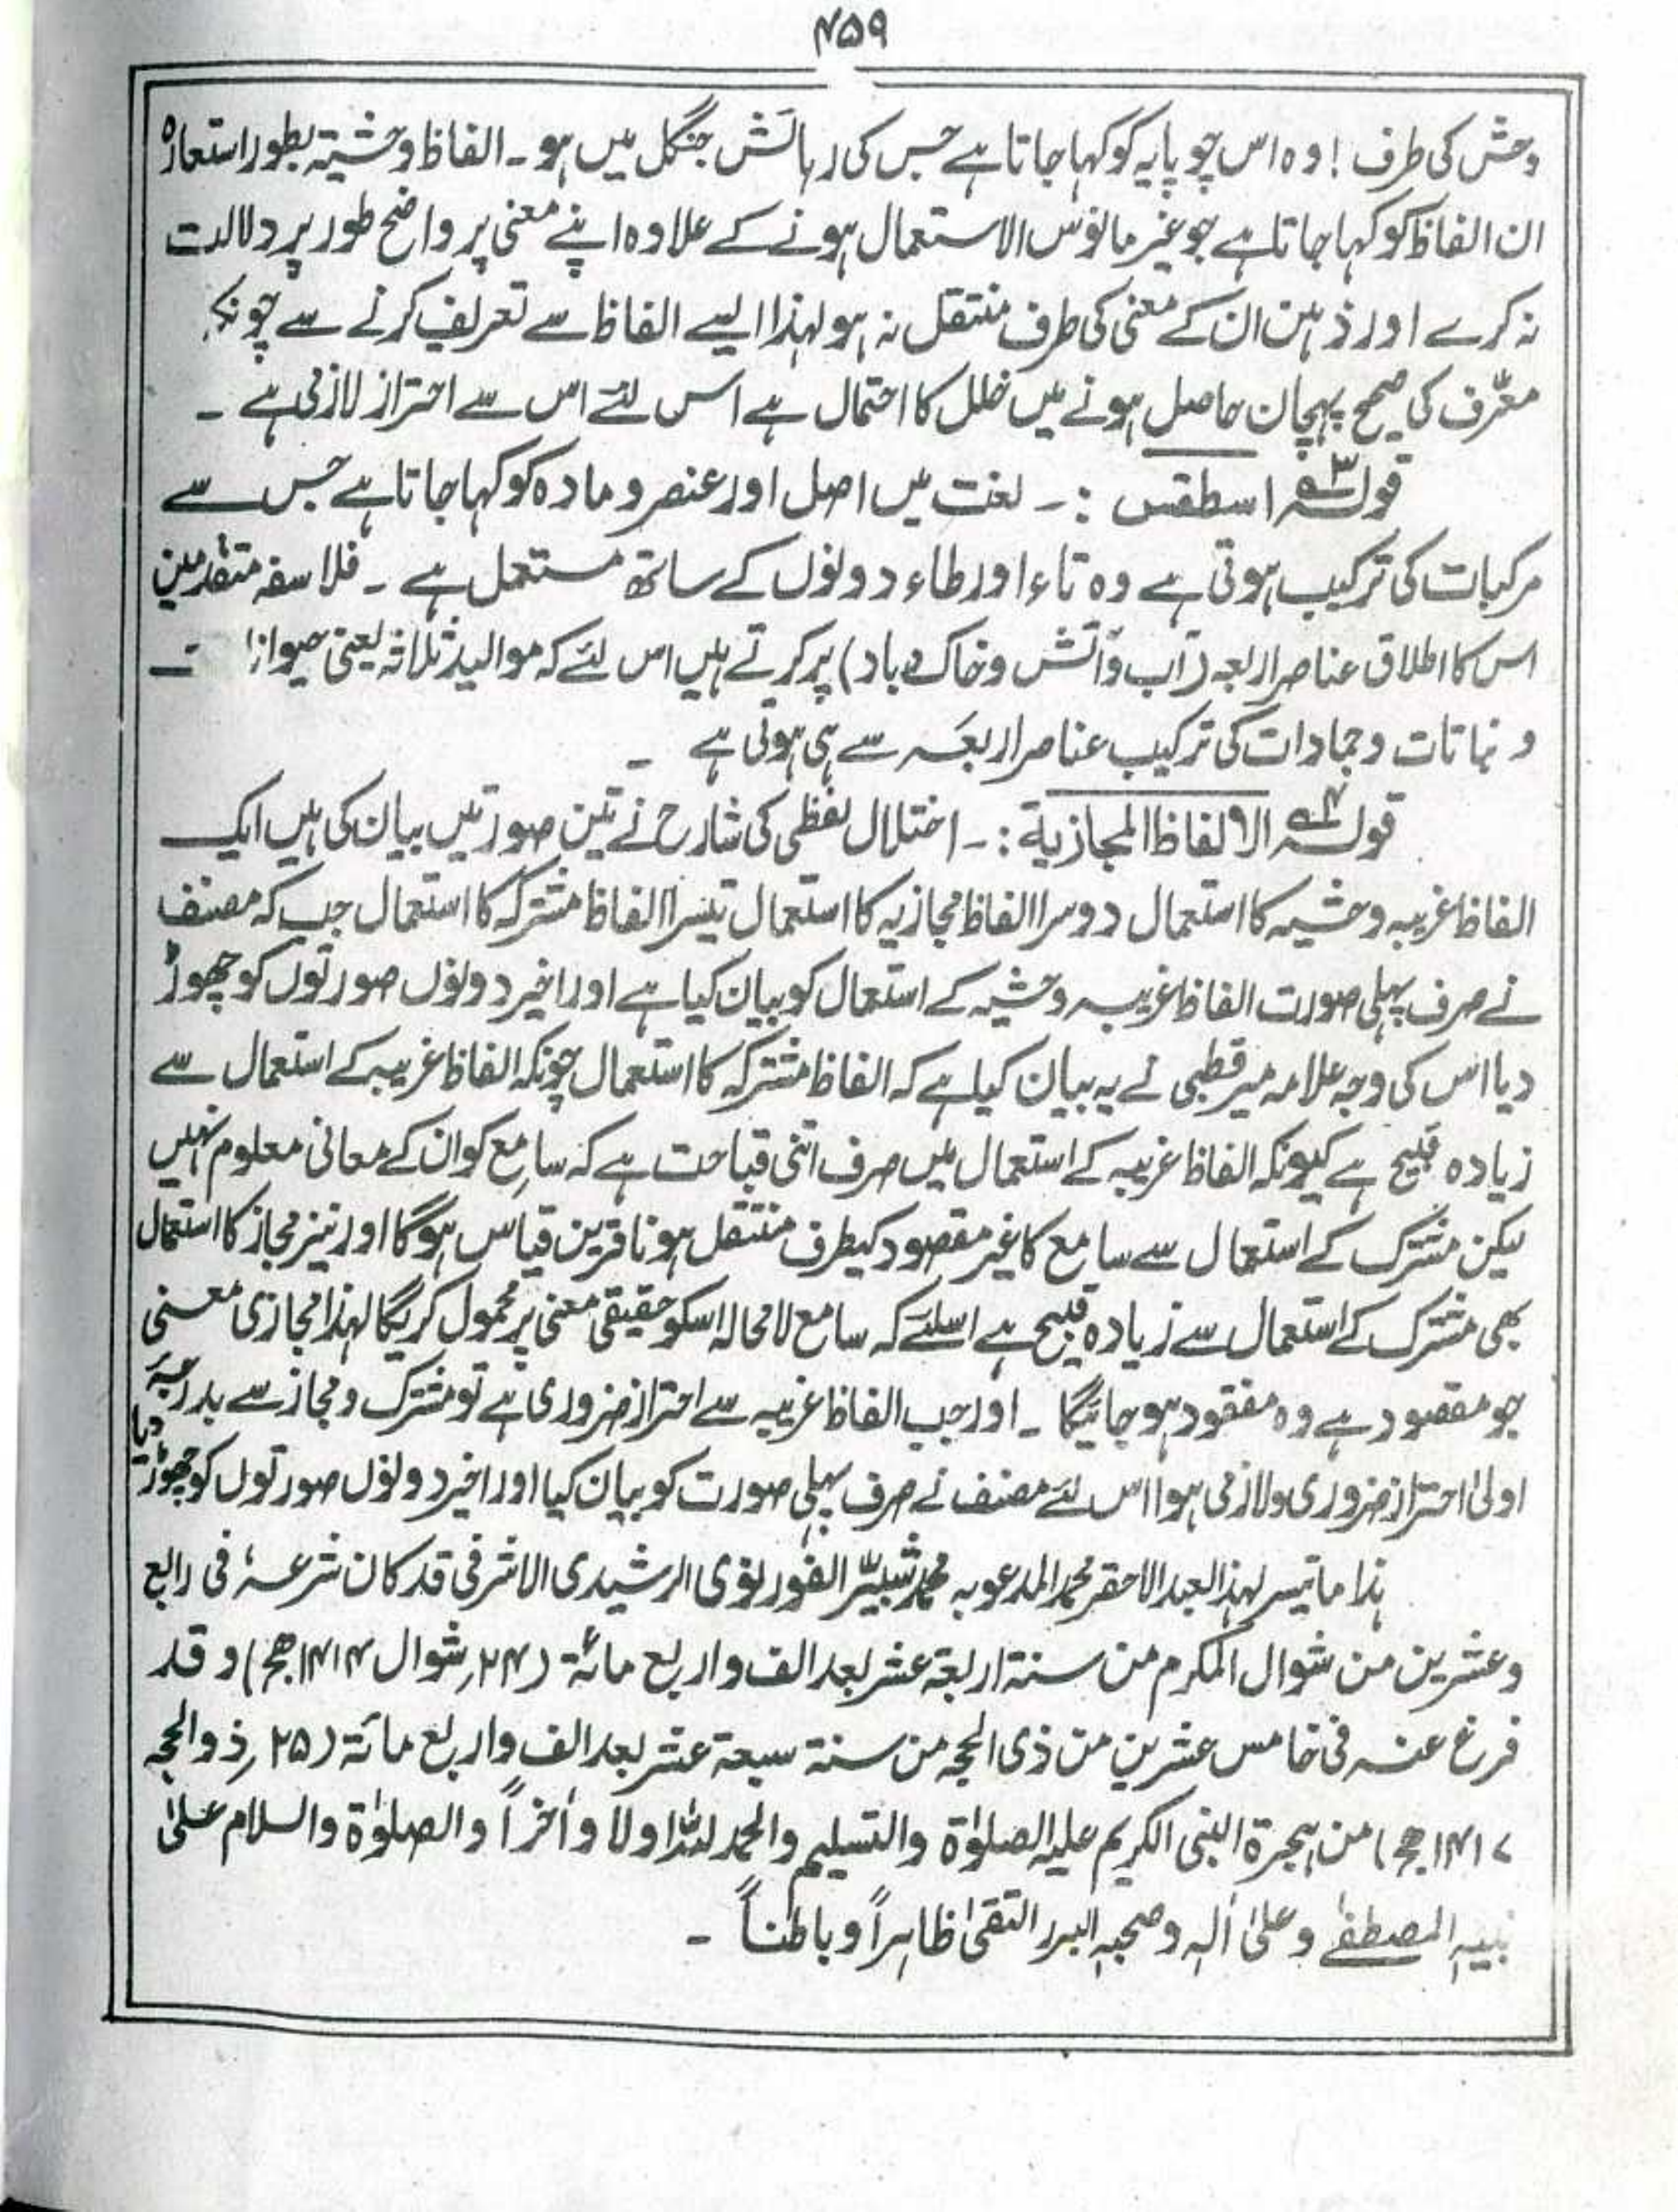 ۴۵۹
وحش کی طرف ! وہ اس چوپایہ کو کہا جاتا ہے جس کی رہائش جنگل میں ہو ۔ الفاظ وحشیۃ بطور استعارہ
ان الفاظ کو کہا جاتا ہے جو غیر مانوس الاستعمال ہونے کے علاوہ اپنے معنی پر واضح طور پر دلالت
نہ کرے اور ذہن ان کے معنی کی طرف منتقل نہ ہو لہذا ایسے الفاظ سے تعریف کرنے سے چونکہ
معرّف کی صحیح پہچان حاصل ہونے میں خلل کا احتمال ہے اس لئے اس سے احتراز لازمی ہے ۔
قولہ ۵۳ اسطقس :۔ لغت میں اصل اور عنصر و مادہ کو کہا جاتا ہے جس سے
مرکبات کی ترکیب ہوتی ہے وہ تاء اور طاء دونوں کے ساتھ مستعمل ہے ۔ فلاسفہ متقدمین
اس کا اطلاق عناصر اربعہ (آب و آتش و خاک و باد) پر کرتے ہیں اس لئے کہ موالید ثلاثہ یعنی حیوانا ت
و نباتات و جمادات کی ترکیب عناصر اربعہ سے ہی ہوتی ہے ۔
قولہ ۵۴ الالفاظ المجازیۃ :۔ اختلال لفظی کی شارح نے تین صورتیں بیان کی ہیں ایک
الفاظ غریبہ وحشیہ کا استعمال دوسرا الفاظ مجازیہ کا استعمال تیسرا الفاظ مشترکہ کا استعمال جب کہ مصنف
نے صرف پہلی صورت الفاظ غریبہ وحشیہ کے استعمال کو بیان کیا ہے اور اخیر دونوں صورتوں کو چھوڑ
دیا اس کی وجہ علامہ میر قطبی نے یہ بیان کیا ہے کہ الفاظ مشترکہ کا استعمال چونکہ الفاظ غریبہ کے استعمال سے
زیادہ قبیح ہے کیونکہ الفاظ غریبہ کے استعمال میں صرف اتنی قباحت ہے کہ سامع کو ان کے معانی معلوم نہیں
لیکن مشترک کے استعمال سے سامع کا غیر مقصود کیطرف منتقل ہونا قرین قیاس ہوگا اور نیز مجاز کا استعمال
بھی مشترک کے استعمال سے زیادہ قبیح ہے اسلئے کہ سامع لا محالہ اسکو حقیقی معنی پر محمول کریگا لہذا مجازی معنی
جو مقصود ہے وہ مفقود ہو جائیگا ۔ اور جب الفاظ غریبہ سے احتراز ضروری ہے تو مشترک و مجاز سے بدرجۂ
اولیٰ احتراز ضروری و لازمی ہوا اس لئے مصنف نے صرف پہلی صورت کو بیان کیا اور اخیر دونوں صورتوں کو چھوڑ دیا
ہذا ما تیسر لہذا العبد الاحقر محمد المدعو بہ محمد شبیّر الفورنوی الرشیدی الاشرفی قد کان شرعہ فی رابع
و عشرین من شوال المکرم من سنۃ اربعۃ عشر بعد الف و اربع مائۃ (۲۴؍ شوال ۱۴۱۴ھج) و قد
فرغ عنہ فی خامس عشرین من ذی الحجہ من سنۃ سبعۃ عشر بعد الف و اربع مائۃ (۲۵؍ ذو الحجہ
۱۴۱۷ھج) من ہجرۃ النبی الکریم علیہ الصلوٰۃ والتسلیم والحمد للہ اولا و اٰخراً والصلوٰۃ والسلام علیٰ
نبیہ المصطفیٰ و علیٰ اٰلہ و صحبہ البرر التقیٰ ظاہراً و باطناً ۔